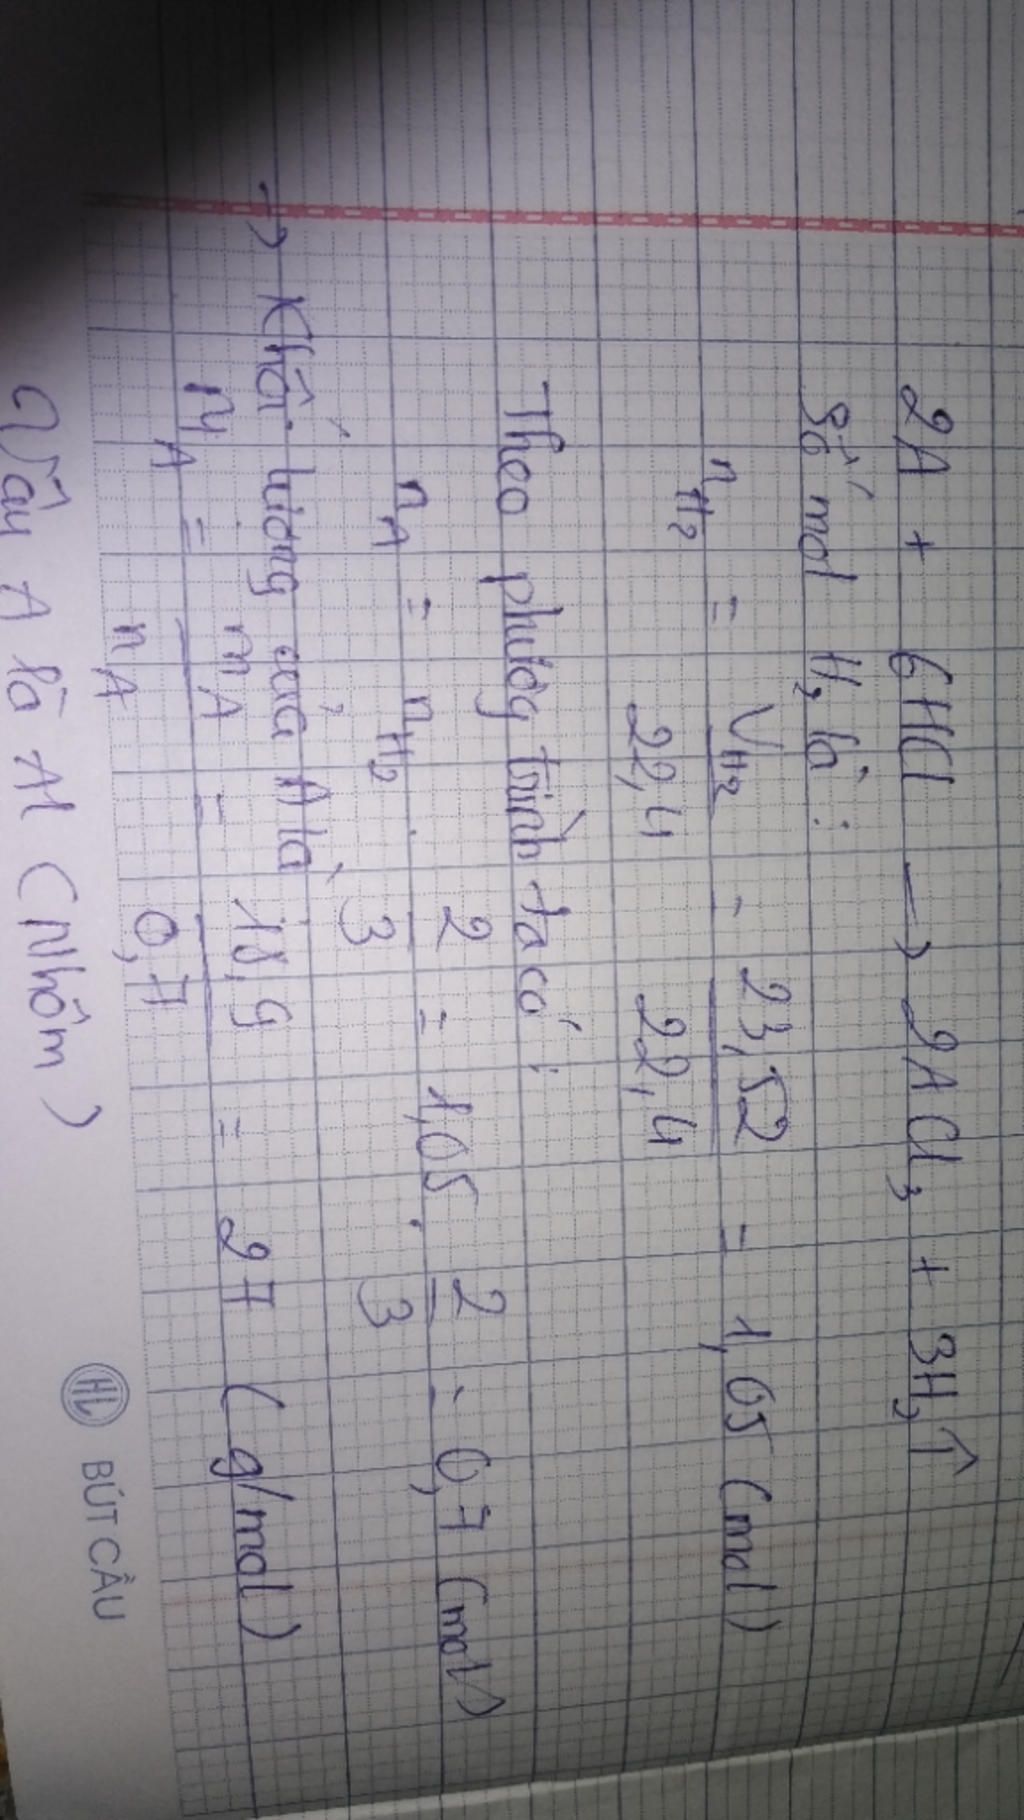 2A + 6HCl → 2ACl₃ + 3H₂↑
Số mol H₂ là :
n_H₂ = V_H₂/22,4 = 23,52/22,4 = 1,05 (mol)
Theo phương trình ta có :
n_A = n_H₂ . 2/3 = 1,05 . 2/3 = 0,7 (mol)
→ Khối lượng của A là
M_A = m_A/n_A = 18,9/0,7 = 27 (g/mol)
Vậy A là Al (Nhôm)
HL BÚT CẦU